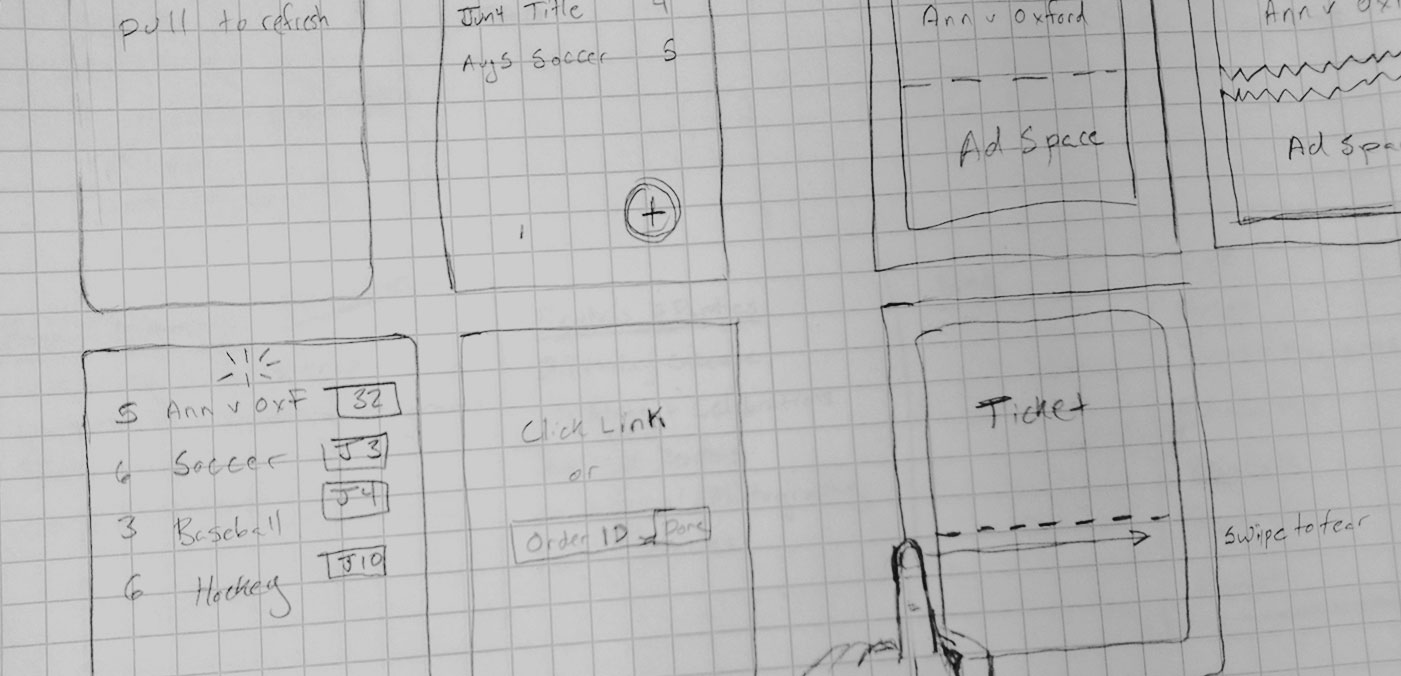 pull to refresh
Jun4 Title 4
Aug5 Soccer 5
Ann v Oxford
Ad Space
Ann v
Ad Spa
5 Ann v OxF 32
6 Soccer J3
J4
3 Baseball
J10
6 Hockey
Click Link
or
Order ID Done
Ticket
Swipe to tear